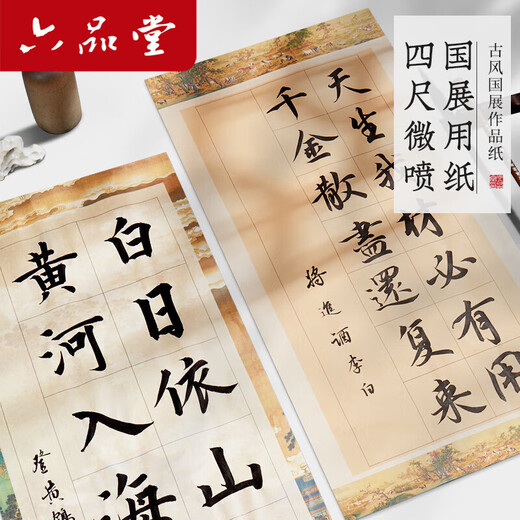 六品堂
古风国展作品纸
国展用纸
四尺微喷
天生我材必有用
千金散盡還复来
将進酒李白
白日依山
黄河入海
登黄鶴